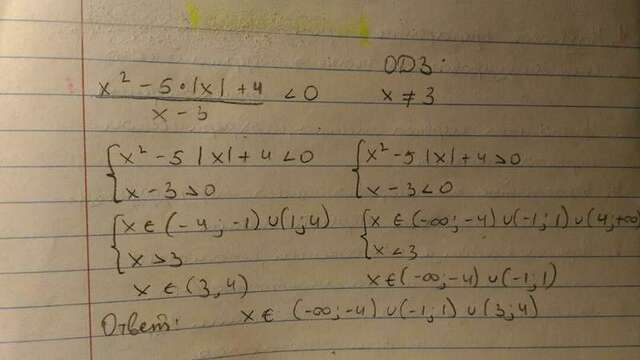 ОДЗ:
x² - 5·|x| + 4 / x - 3 < 0
x ≠ 3
{ x² - 5|x| + 4 < 0
x - 3 > 0
{ x² - 5|x| + 4 > 0
x - 3 < 0
{ x ∈ (-4; -1) ∪ (1; 4)
x > 3
{ x ∈ (-∞; -4) ∪ (-1; 1) ∪ (4; +∞)
x < 3
x ∈ (3, 4)
x ∈ (-∞; -4) ∪ (-1; 1)
Ответ: x ∈ (-∞; -4) ∪ (-1; 1) ∪ (3; 4)